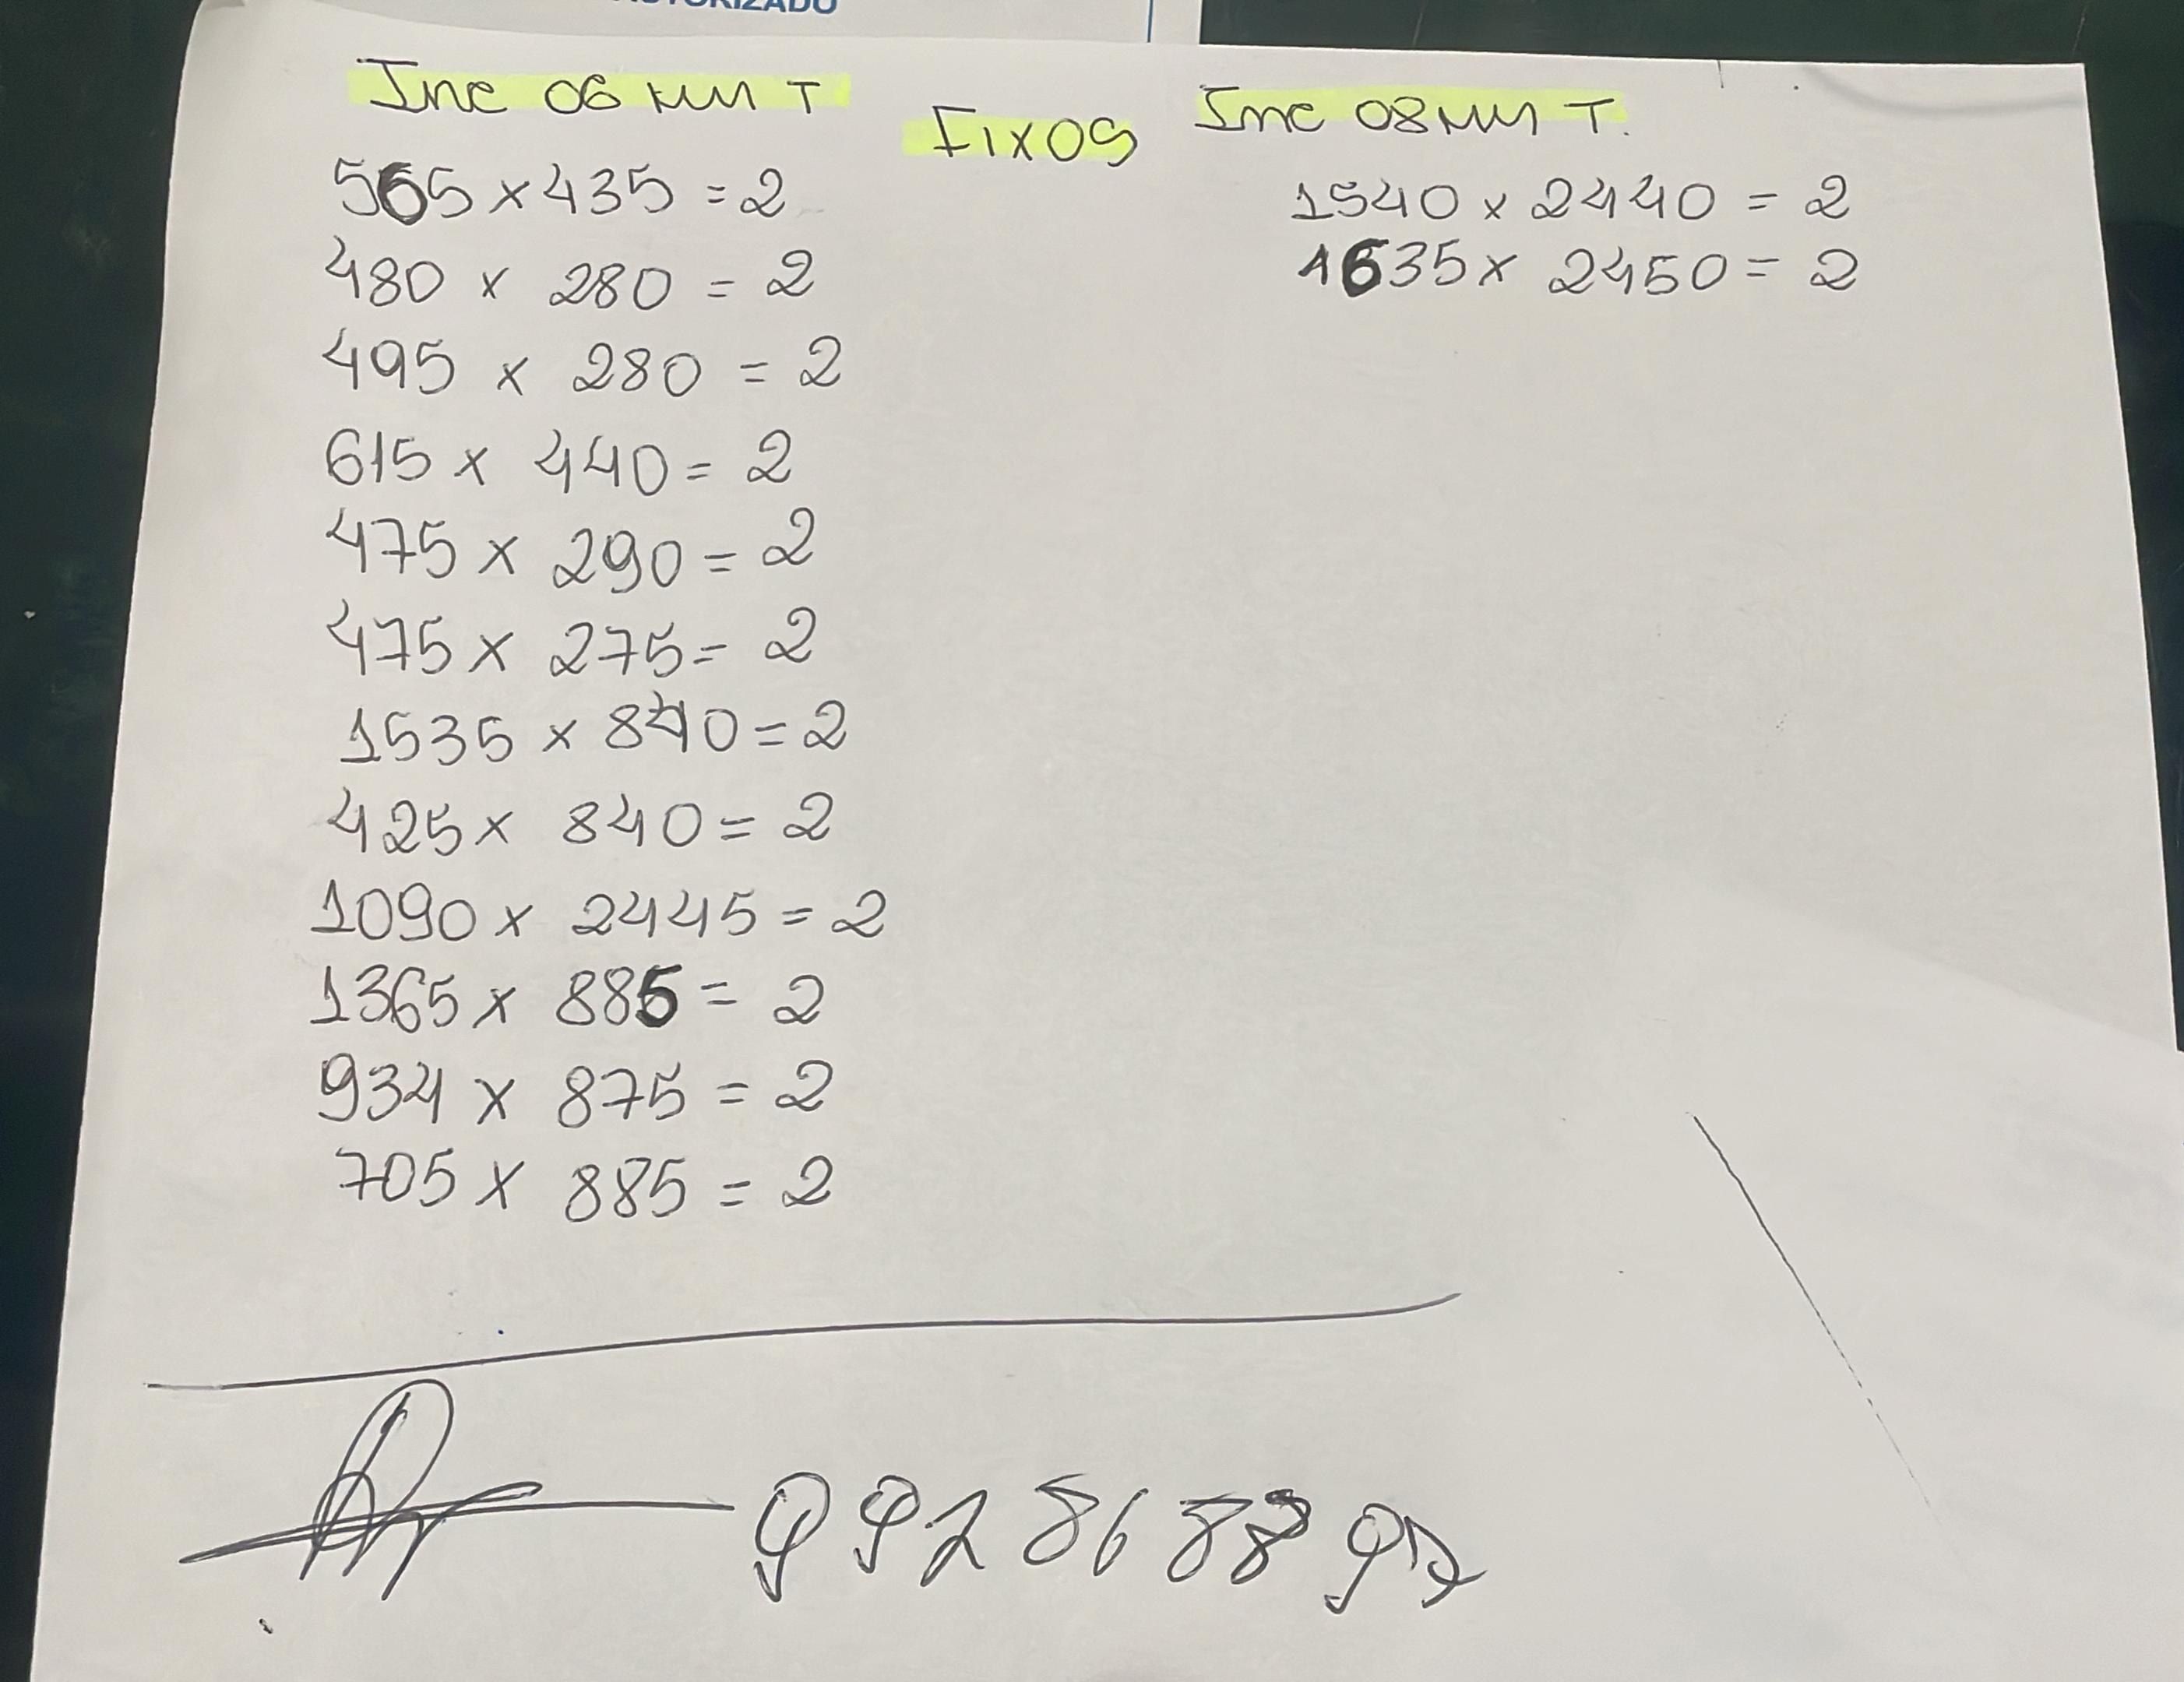 AUTORIZADO
Inc 06 MM T
565 x 435 = 2
480 x 280 = 2
495 x 280 = 2
615 x 440 = 2
475 x 290 = 2
475 x 275 = 2
1535 x 840 = 2
425 x 840 = 2
1090 x 2445 = 2
1365 x 885 = 2
934 x 875 = 2
705 x 885 = 2
FIXOS
Inc 08 MM T.
1540 x 2440 = 2
1635 x 2450 = 2